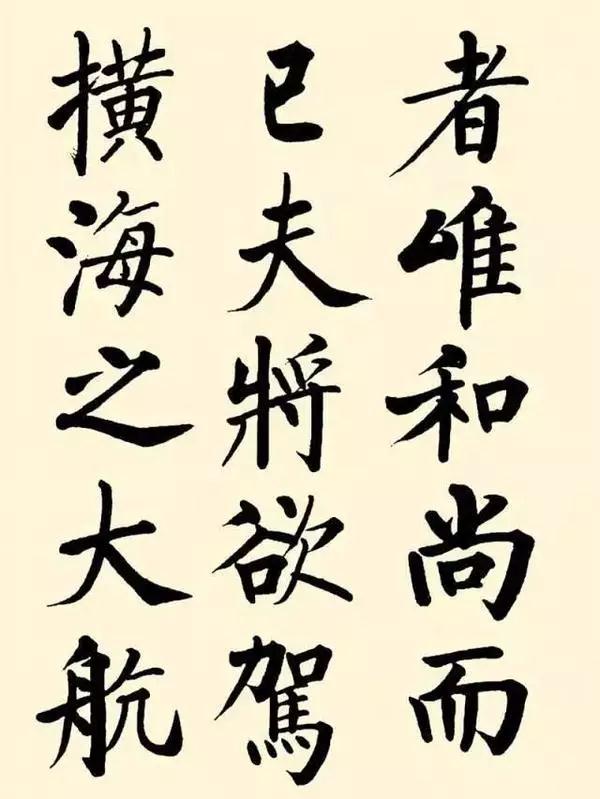 者唯和尚而
已夫將欲駕
撗海之大航